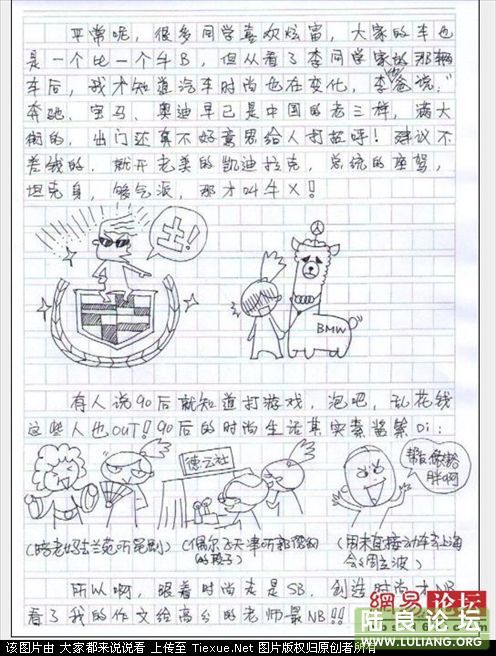 平常呢，很多同学喜欢炫富，大家的车也
是一个比一个牛B，但从看了李同学家的那辆
车后，我才知道汽车时尚也在变化，李爸说：“
奔驰、宝马、奥迪早已是中国的老三样，满大
街的，出门还真不好意思给人打招呼！建议不
差钱的，就开老美的凯迪拉克，总统的座驾，
坦克身，够气派，那才叫牛X！
土！
BMW
有人说90后就知道打游戏，泡吧，乱花钱
这些人也OUT！90后的时尚生活其实索酱紫Di：
德云社
(陪老妈去兰苑听昆剧)
(偶尔飞天津听郭德纲
(周末直接动车去上海
会会周立波)
所以啊，跟着时尚走是SB，创造时尚才NB
看了我的作文给高分的老师最NB!!
网易 论坛
陆良论坛
WWW.LULIANG.ORG
该图片由 大家都来说说看 上传至 Tiexue.Net 图片版权归原创者所有